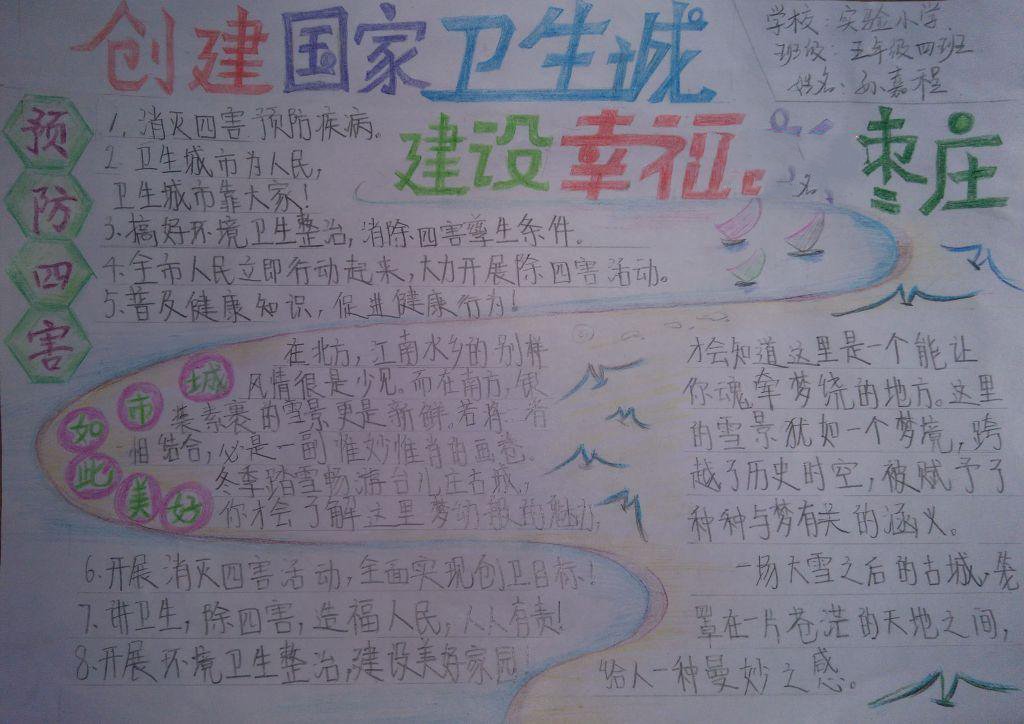 创建国家卫生城
学校：实验小学
班级：五年级四班
姓名：孙嘉程
建设幸福
枣庄
预防四害
1、消灭四害预防疾病。
2 卫生城市为人民，
卫生城市靠大家！
3、搞好环境卫生整治，消除四害孳生条件。
4、全市人民立即行动起来，大力开展除四害活动。
5、普及健康知识，促进健康行为！
城市如此美好
在北方，江南水乡的别样
风情很是少见。而在南方，银
装素裹的雪景更是新鲜。若将二者
相结合，必是一副惟妙惟肖的画卷。
冬季踏雪畅游台儿庄古城，
你才会了解这里梦幻般的魅力，
才会知道这里是一个能让
你魂牵梦绕的地方。这里
的雪景犹如一个梦境，跨
越了历史时空，被赋予了
种种与梦有关的涵义。
一场大雪之后的古城，笼
罩在一片苍茫的天地之间，
给人一种曼妙之感。
6、开展消灭四害活动，全面实现创卫目标！
7、讲卫生，除四害，造福人民，人人有责！
8、开展环境卫生整治，建设美好家园！